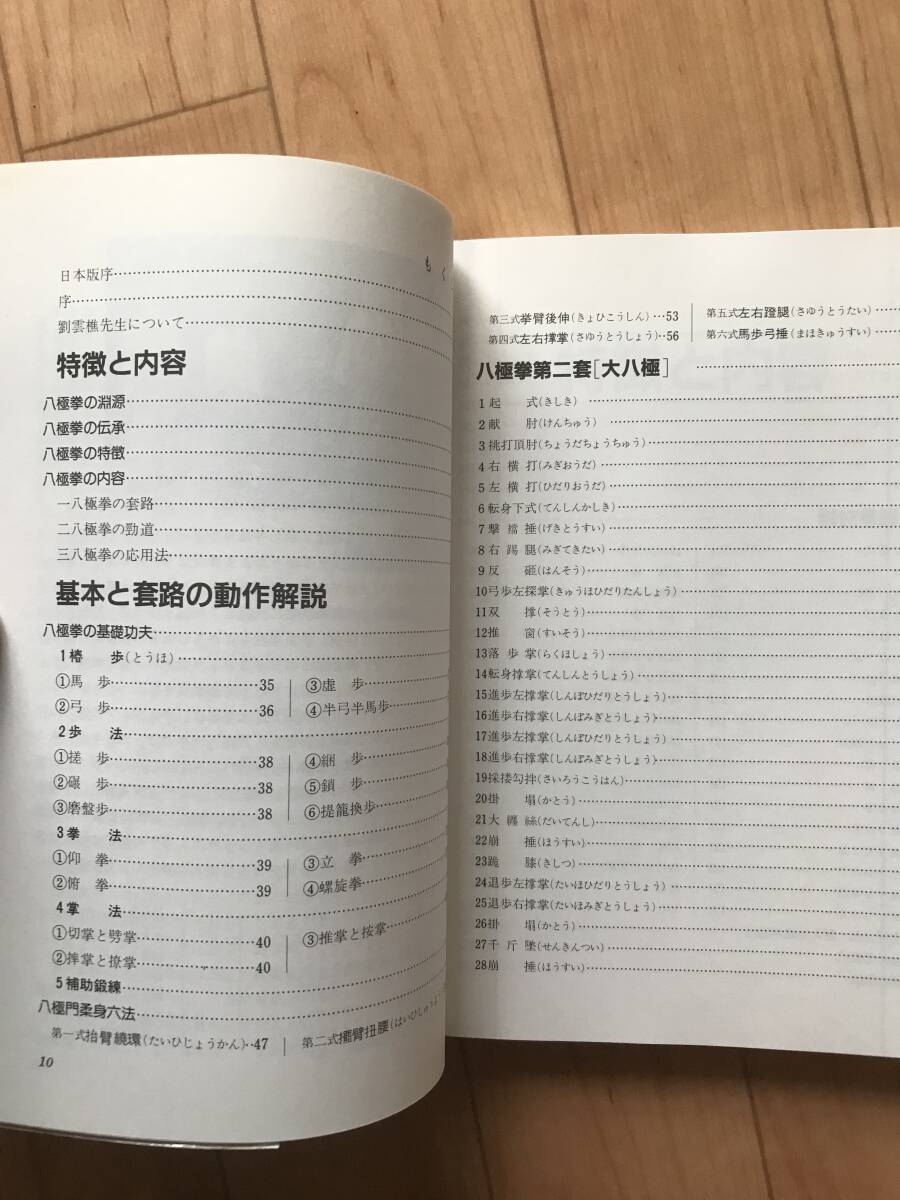 もく
日本版序
序
劉雲樵先生について
特徴と内容
八極拳の淵源
八極拳の伝承
八極拳の特徴
八極拳の内容
一八極拳の套路
二八極拳の勁道
三八極拳の応用法
基本と套路の動作解説
八極拳の基礎功夫
1樁 歩(とうほ)
①馬 歩 35 ③虚 歩
②弓 歩 36 ④半弓半馬歩
2歩 法
①搓 歩 38 ④綑 歩
②碾 歩 38 ⑤鎖 歩
③磨盤歩 38 ⑥提籠換歩
3拳 法
①仰 拳 39 ③立 拳
②俯 拳 39 ④螺旋拳
4掌 法
①切掌と劈掌 40 ③推掌と按掌
②摔掌と撩掌 40
5補助鍛練
八極門柔身六法
第一式抬臂繞環(たいひじょうかん)‥47 第二式擺臂扭腰(はいひじゅうよう
10
第三式挙臂後伸(きょひこうしん)…53 第五式左右蹬腿(さゆうとうたい)
第四式左右撑掌(さゆうとうしょう)‥56 第六式馬歩弓捶(まほきゅうすい)
八極拳第二套[大八極]
1起 式(きしき)
2献 肘(けんちゅう)
3挑打頂肘(ちょうだちょうちゅう)
4右 横 打(みぎおうだ)
5左 横 打(ひだりおうだ)
6転身下式(てんしんかしき)
7撃 襠 捶(げきとうすい)
8右 踢 腿(みぎてきたい)
9反 砸(はんそう)
10弓歩左探掌(きゅうほひだりたんしょう)
11双 撑(そうとう)
12推 窗(すいそう)
13落 歩 掌(らくほしょう)
14転身撑掌(てんしんとうしょう)
15進歩左撑掌(しんぽひだりとうしょう)
16進歩右撑掌(しんぽみぎとうしょう)
17進歩左撑掌(しんぽひだりとうしょう)
18進歩右撑掌(しんぽみぎとうしょう)
19採搂勾抻(さいろうこうはん)
20掛 塌(かとう)
21大 纏 絲(だいてんし)
22崩 捶(ほうすい)
23跪 膝(きしつ)
24退歩左撑掌(たいほひだりとうしょう)
25退歩右撑掌(たいほみぎとうしょう)
26掛 塌(かとう)
27千 斤 墜(せんきんつい)
28崩 捶(ほうすい)